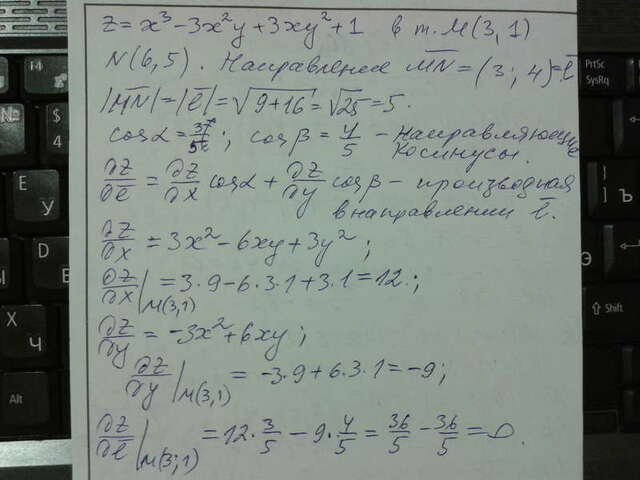 z = x³ - 3x²y + 3xy² + 1 в т. M(3, 1)
N(6, 5). Направление MN = (3; 4) = l
|MN| = |l| = √9+16 = √25 = 5.
cosα = 3/5; cosβ = 4/5 - направляющие
косинусы.
∂z/∂l = ∂z/∂x cosα + ∂z/∂y cosβ - производная
в направлении l.
∂z/∂x = 3x² - 6xy + 3y²;
∂z/∂x |M(3,1) = 3·9 - 6·3·1 + 3·1 = 12.;
∂z/∂y = -3x² + 6xy;
∂z/∂y |M(3,1) = -3·9 + 6·3·1 = -9;
∂z/∂l |M(3;1) = 12·3/5 - 9·4/5 = 36/5 - 36/5 = 0.
PrtSc
SysRq
F4
$
4
E
У
D
В
X
Ч
Alt
Ъ
Shift